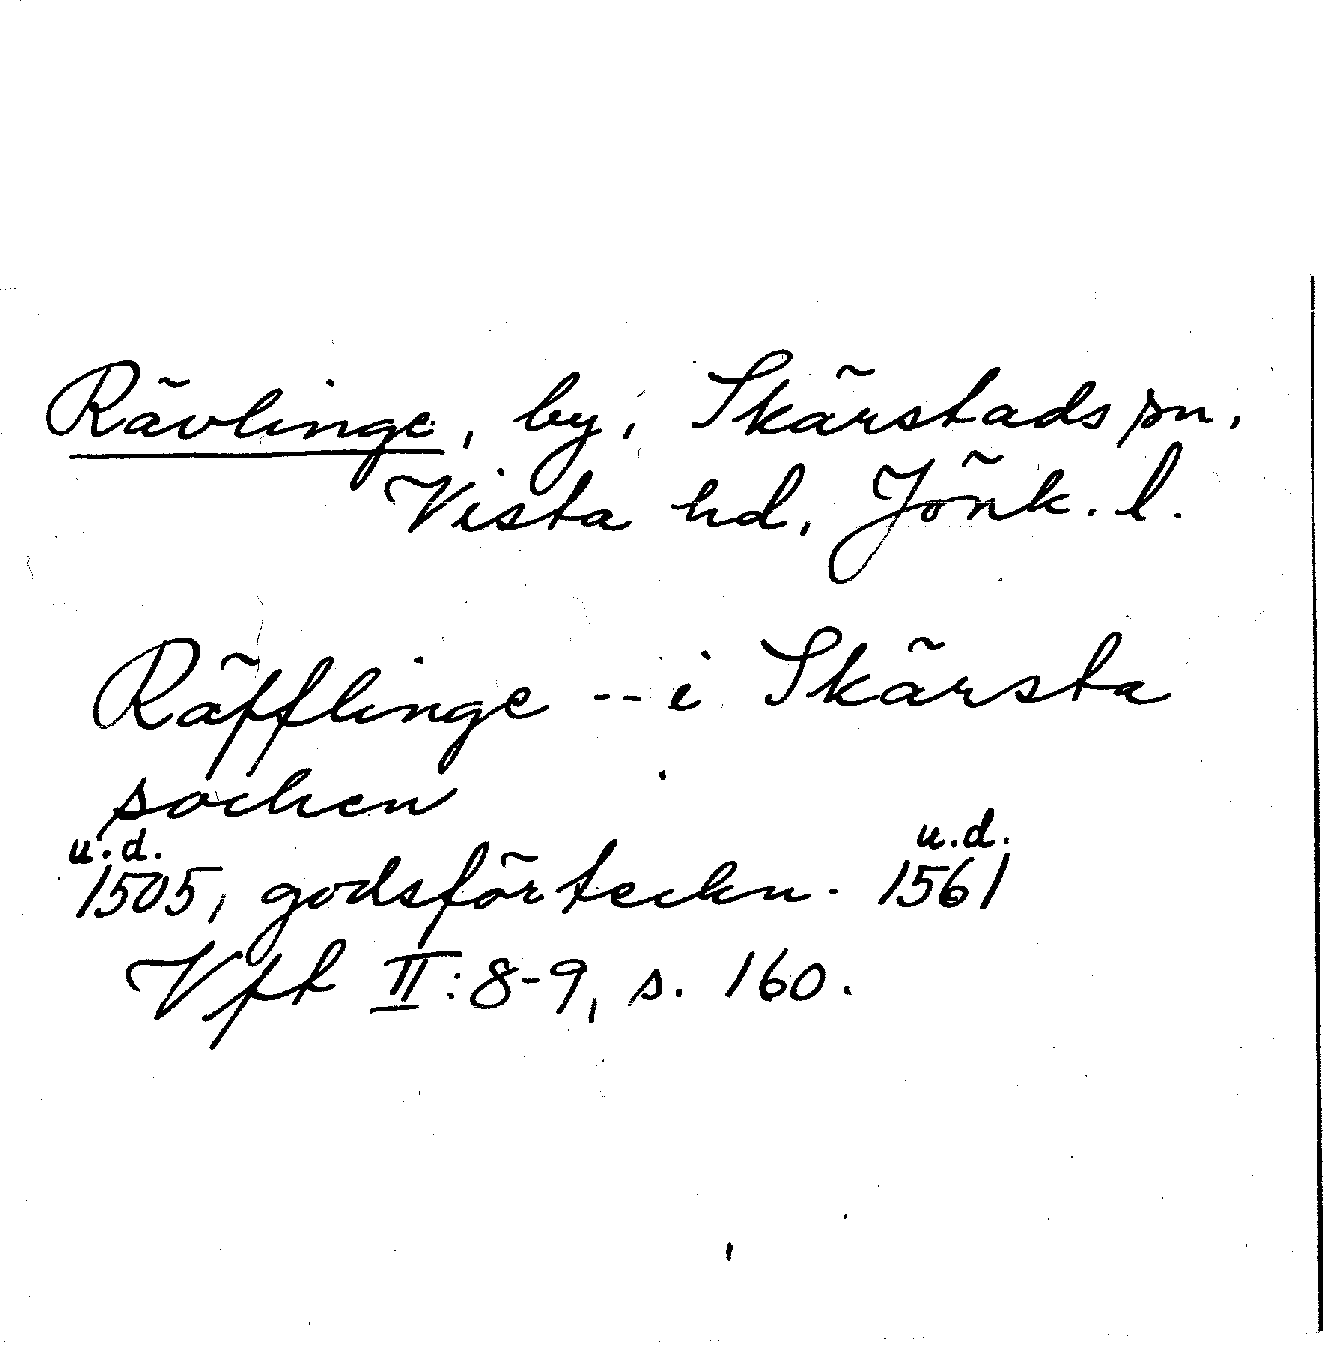 Rävlinge, by, Skärstads sn,
Vista hd, Jönk. l.
Räfflinge -- i Skärsta
sochen
u.d. u.d.
1505, godsförteckn. 1561
Vfk II:8-9, s. 160.